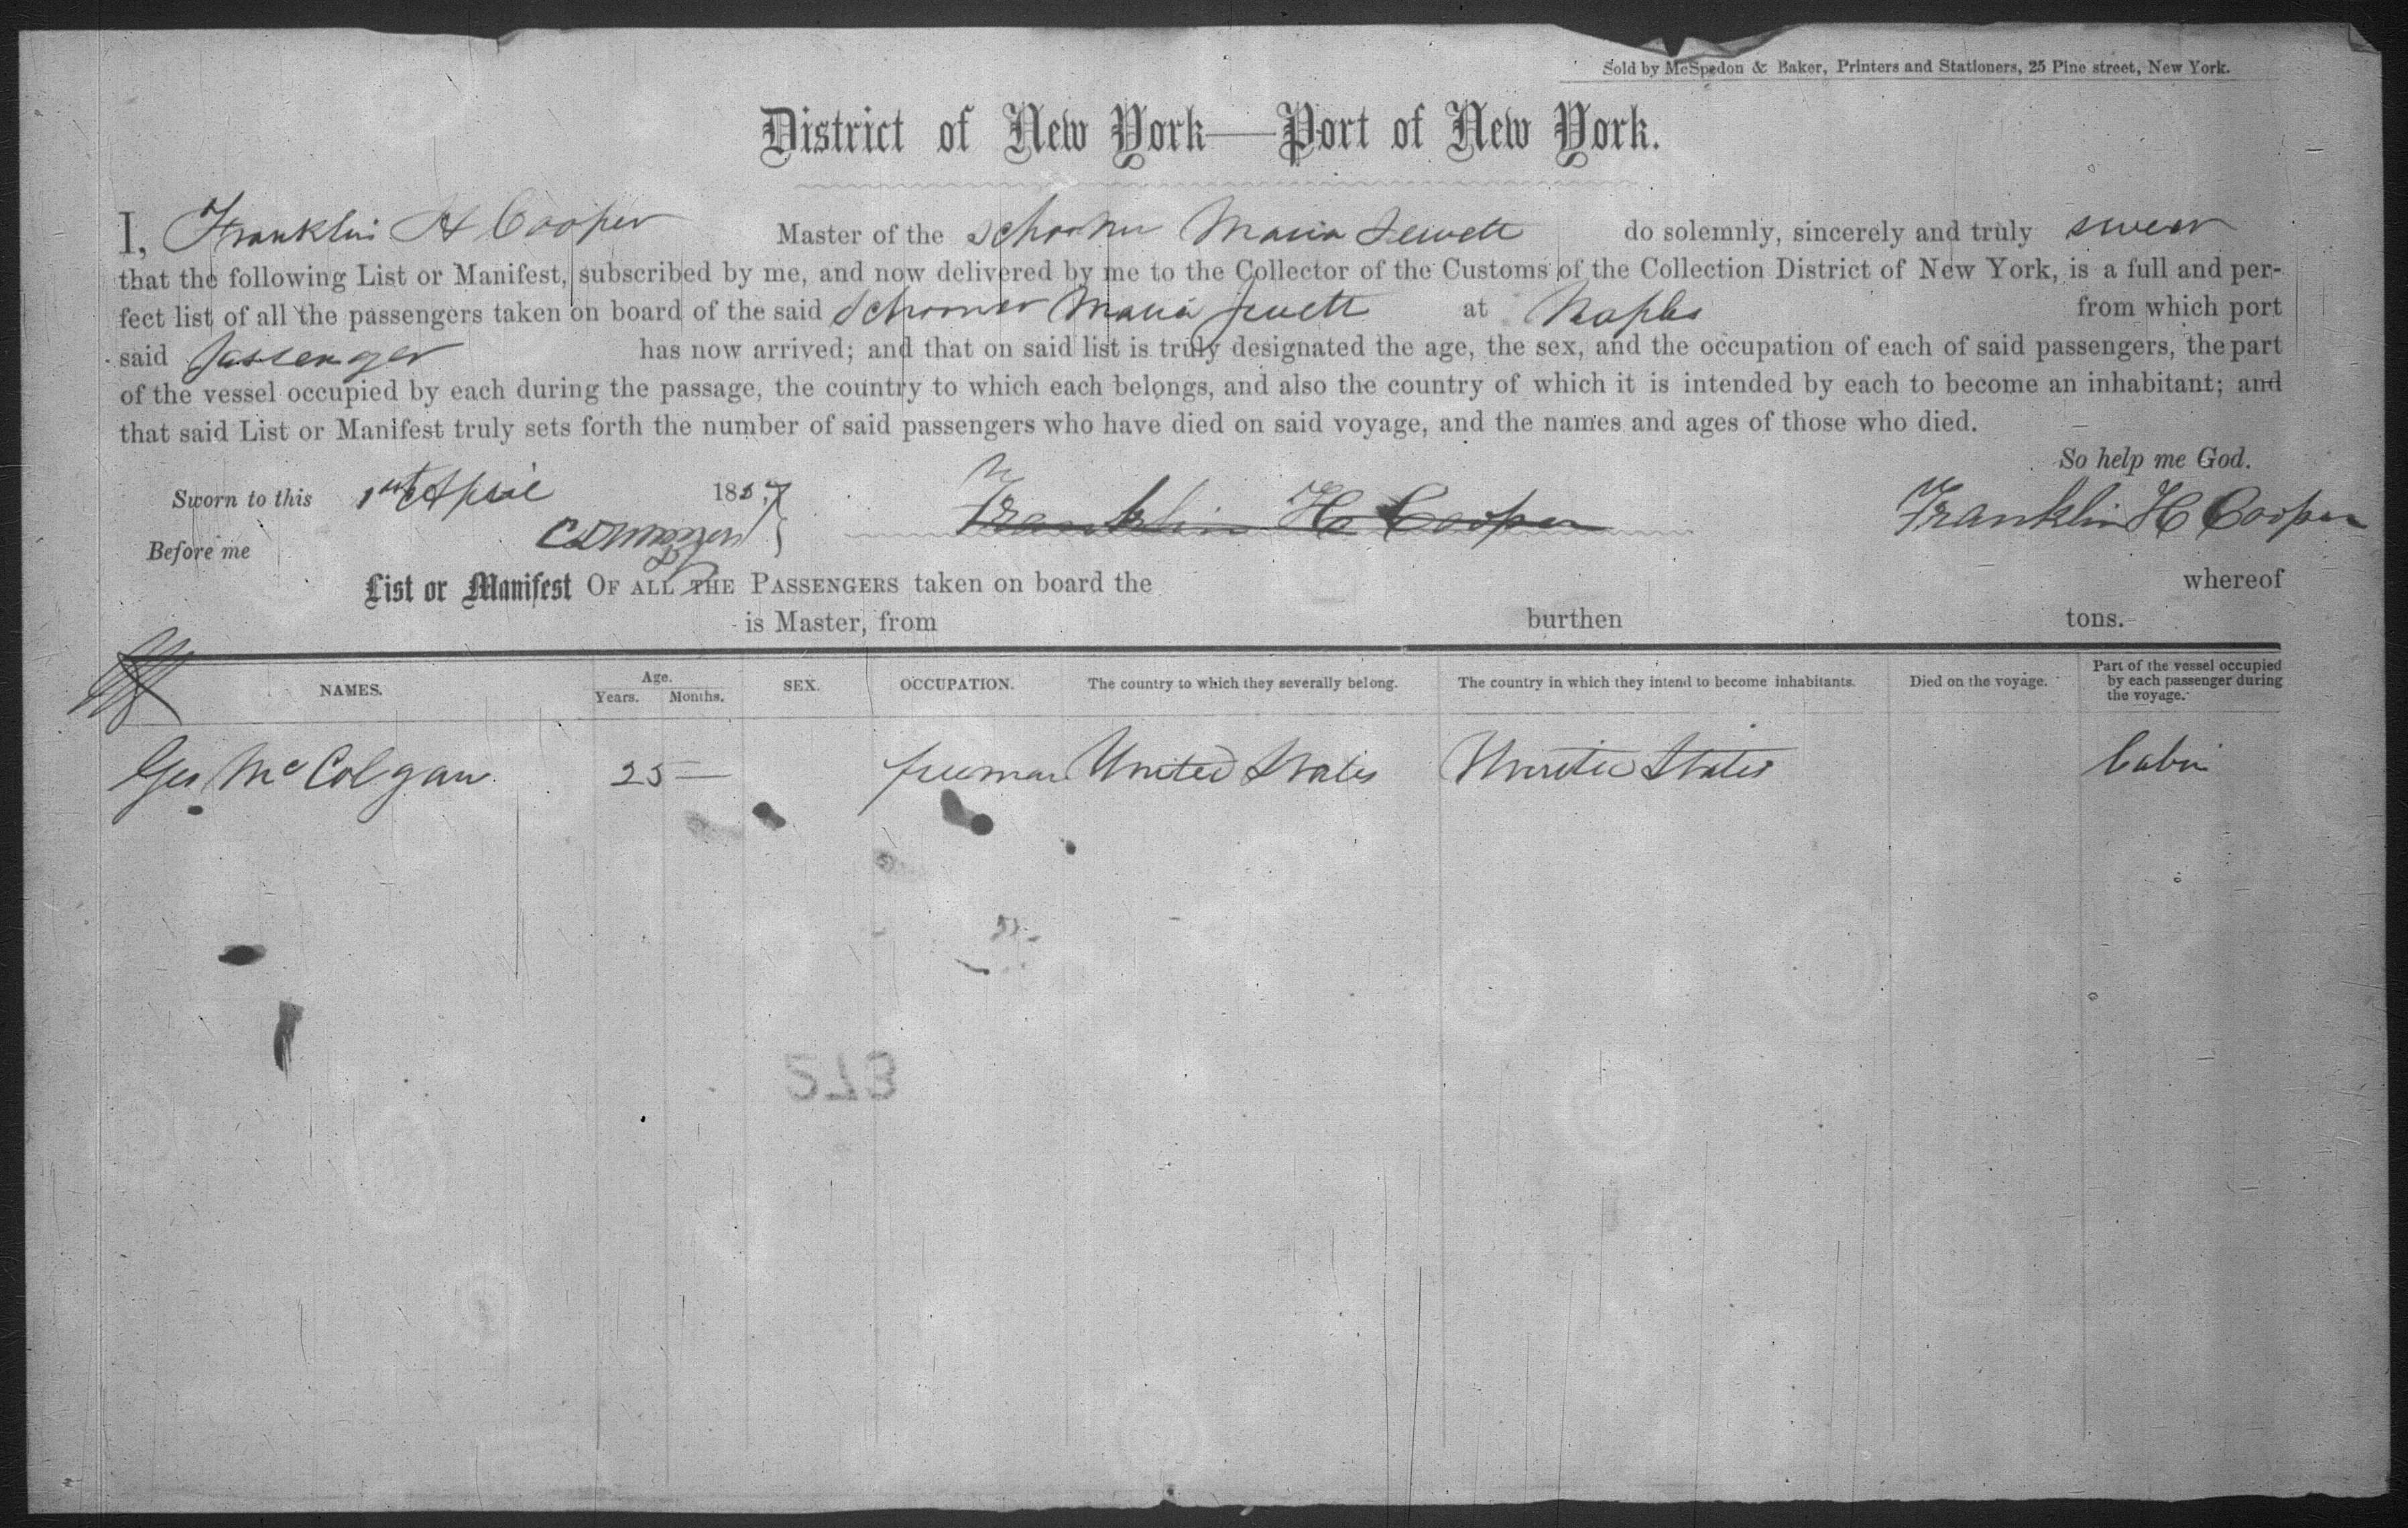 Sold by McSpedon & Baker, Printers and Stationers, 25 Pine street, New York.
District of New York—Port of New York.
I, Franklin H Cooper Master of the Schooner Maria Jewett do solemnly, sincerely and truly swear
that the following List or Manifest, subscribed by me, and now delivered by me to the Collector of the Customs of the Collection District of New York, is a full and per-
fect list of all the passengers taken on board of the said Schooner Maria Jewett at Naples from which port
said passenger has now arrived; and that on said list is truly designated the age, the sex, and the occupation of each of said passengers, the part
of the vessel occupied by each during the passage, the country to which each belongs, and also the country of which it is intended by each to become an inhabitant; and
that said List or Manifest truly sets forth the number of said passengers who have died on said voyage, and the names and ages of those who died.
So help me God.
Sworn to this 1st April 1857 Franklin H Cooper Franklin H Cooper
Before me
List or Manifest OF ALL THE PASSENGERS taken on board the whereof
is Master, from burthen tons.
NAMES. Age. Years. Months. SEX. OCCUPATION. The country to which they severally belong. The country in which they intend to become inhabitants. Died on the voyage. Part of the vessel occupied by each passenger during the voyage.
Geo McColgan 25 — United States United States Cabin
273